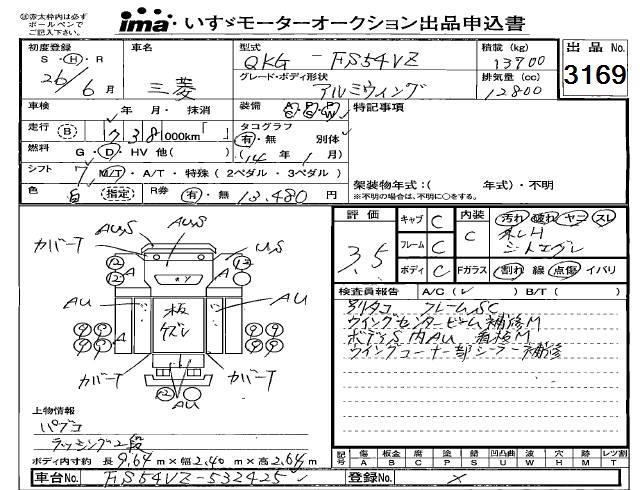 ㊟赤太枠内は必ず
ボールペンで
ご記入下さい。
ima いすゞモーターオークション出品申込書
初度登録 車名 型式 積載(kg) 出品No.
S・H・R 三菱 QKG - FS54VZ 13700 3169
26年 6月
グレード・ボディ形状 排気量(cc)
アルミウィング 12800
車検 年 月・抹消 装備 A/C P/S P/W 特記事項
走行 B 738,000km「 」 タコグラフ
有・無 別体
燃料 G・D・HV 他( ) (14年 1月)
シフト 7 M/T・A/T・特殊(2ペダル・3ペダル) 架装物年式:( 年式)・不明
※不明の場合は、不明に○をする。
色 白 指定 R券 有・無 13,480円
評価 3.5
キャブ C 内装 C 汚れ 破れ ヤニ スレ
フレーム C
ボディ C Fガラス 割れ 線 点傷 イバリ
検査員報告 A/C( ✓ ) B/T( )
別タコ フレームSC
ウイングセンタービーム補修M
ボディS 内AU 看板M
ウイングコーナー部シーラー補修
AU,S AU,S
カバーT U,S
12 12 A A 12
AU AU
板
ズレ
9 9 9 9
9 9 9 9
カバーT カバーT
12 AU
上物情報
パブコ
ラッシング2段
ボディ内寸約 長9.64m×幅2.40m×高2.64m
記号 傷A 板金B 腐C 塗P 錆S 凹凸曲U 波W 穴H 跡M レツ割T
車台No. FS54VZ-532425 登録No. ×